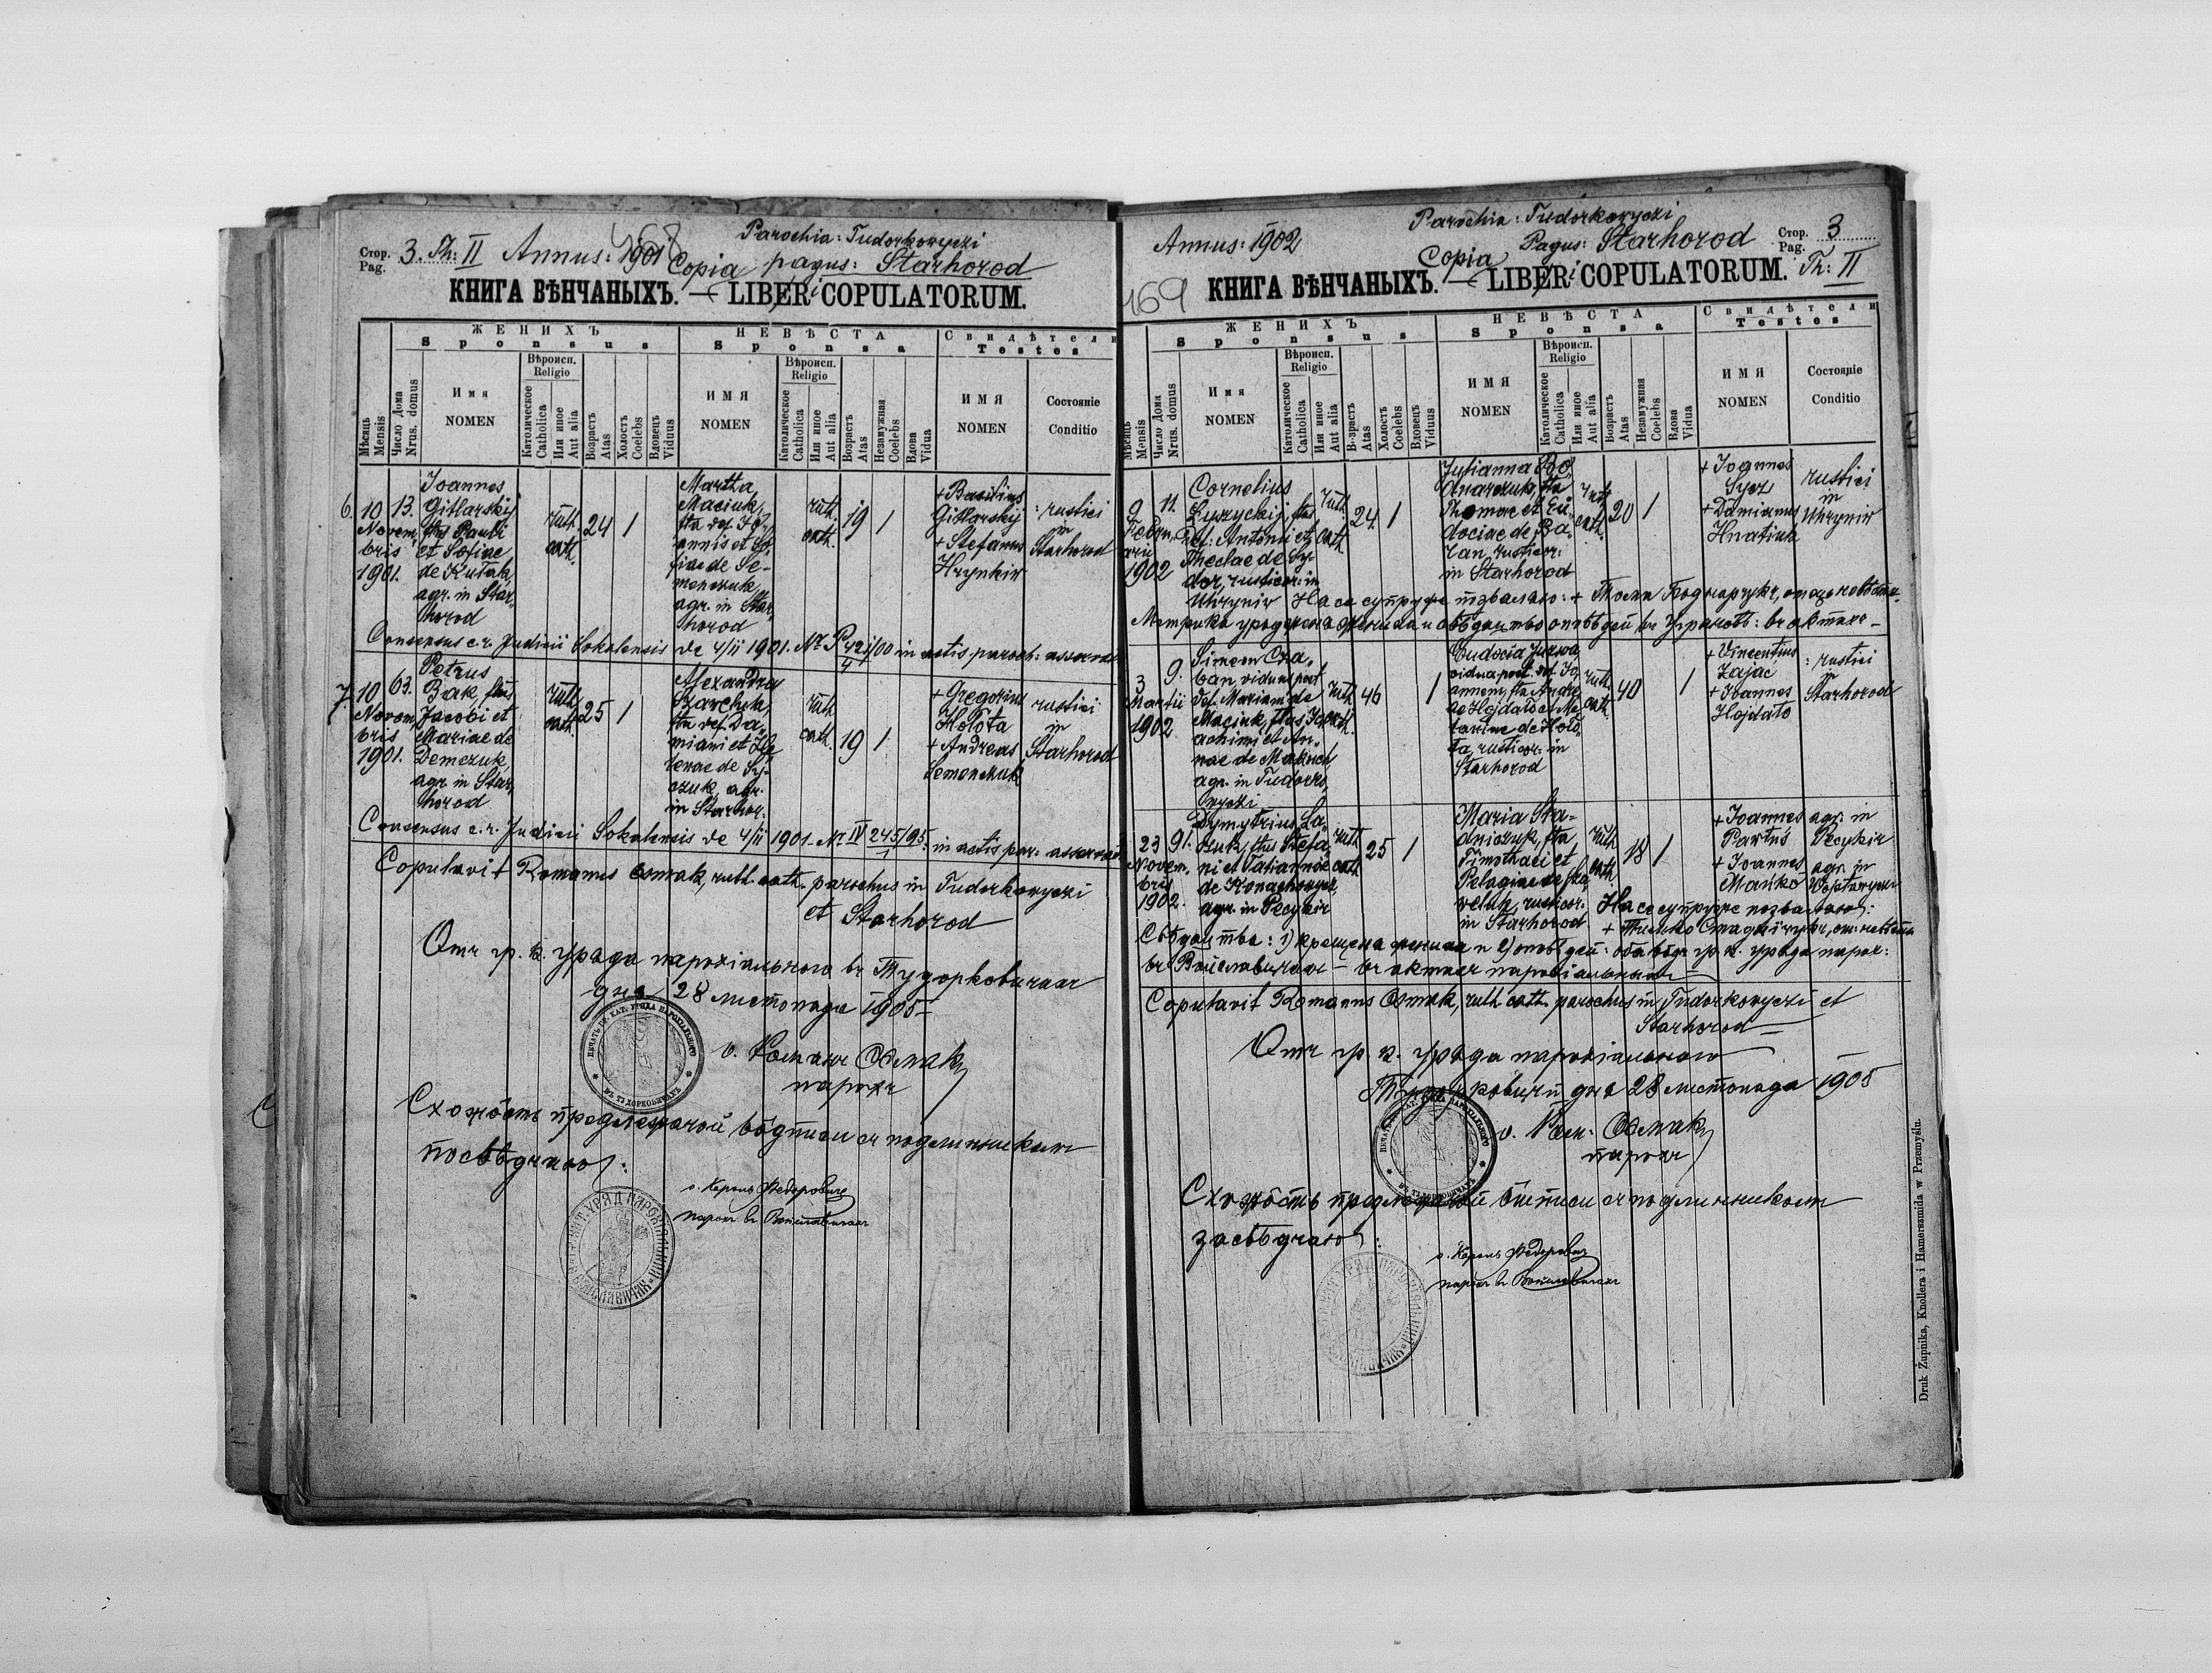 Parochia: Tudorkovyczi
Стор. Pag. 3. Th: II Annus: 1901 Copia pagus: Starhorod
468
КНИГА ВѢНЧАНЫХЪ. — LIBER COPULATORUM.
Мѣсяць Mensis
Число Дома Nrus. domus
ЖЕНИХЪ
Sponsus
ИМЯ
NOMEN
Вѣроисп.
Religio
Католическое Catholica
Или иное Aut alia
Возрастъ Atas
Холостъ Coelebs
Вдовець Viduus
НЕВѢСТА
Sponsa
ИМЯ
NOMEN
Вѣроисп.
Religio
Католическое Catholica
Или иное Aut alia
Возрастъ Atas
Незамужная Coelebs
Вдова Vidua
Свидѣтели
Testes
ИМЯ
NOMEN
Состояніе
Conditio
6. 10
Novem
bris
1901.
13.
Joannes
Gitlarskij
ftus Pauli
et Sofiae
de Kułak,
agr. in Star
horod
ruth.
cath.
24
1
Martha
Maciuk,
fta def. Jo
annis et So
fiae de Se-
menczuk
agr. in Star
horod
ruth.
cath.
19
1
+ Basilius
Gitlarskij
+ Stefanus
Hrynkiw
rustici
in
Starhorod
Consensus c. r. Judicii Sokalensis de 4/11 1901. Nr P 421/00 in actis paroch: asservat
4
7. 10
Novem
bris
1901.
63.
Petrus
Bak, ftus
Jacobi et
Mariae de
Demczuk,
agr. in Star
horod
ruth
cath.
25
1
Alexandra
fta def. Da
miani et He
lenae de Sy-
czuk, agr.
in Starhor.
ruth
cath.
19
1
+ Gregorius
Hołota
+ Andreas
Semenczuk
rustici
in
Starhorod
Consensus c. r. Judicii Sokalensis de 4/11 1901. Nr IV 245/95. in actis par: asservat
1
Copulavit Romanus Osmak, ruth. cath. parochus in Tudorkovyczi
et Starhorod
Отъ гр. к. уряда парохіяльного въ Тудорковичахъ
дня 28 листопада 1905
о. Романъ Осмак
парохъ
ПЕЧАТЬ ГР. КАТ. УРЯДА ПАРОХІАЛЬНОГО ВЪ ТУДОРКОВИЧАХЪ
Схожôсть предлежачой вôдписи съ подлинникомъ
посвѣдчаю:
парохъ въ Войславичахъ
Parochia: Tudorkovyczi
Annus: 1902
Copia Pagus: Starhorod Стор. Pag. 3
Th: II
469
КНИГА ВѢНЧАНЫХЪ. — LIBER COPULATORUM.
Мѣсяць Mensis
Число Дома Nrus. domus
ЖЕНИХЪ
Sponsus
ИМЯ
NOMEN
Вѣроисп.
Religio
Католическое Catholica
Или иное Aut alia
Возрастъ Atas
Холостъ Coelebs
Вдовець Viduus
НЕВѢСТА
Sponsa
ИМЯ
NOMEN
Вѣроисп.
Religio
Католическое Catholica
Или иное Aut alia
Возрастъ Atas
Незамужная Coelebs
Вдова Vidua
Свидѣтели
Testes
ИМЯ
NOMEN
Состояніе
Conditio
9
Febru
arii
1902
11.
Cornelius
ftus
def: Antonii et
Theclae de Sy-
dor, rusticor: in
Uhryniw
ruth.
cath.
24
1
Julianna Bo
dnarczuk, fta
Thomae et Eu
dociae de Ba
ran, rusticor:
in Starhorod
ruth
cath.
20
1
+ Joannes
Sycz
+ Damianus
Hnatiuk
rustici
in
Uhryniw
На се супруже позваляю: + Тома Боднарчукъ, отець невѣсты.
Метрика уродженя жениха и свѣдоцтво оповѣдей въ Угриновѣ: въ актахъ
3
Martii
1902
9.
Simeon Cza
ban, viduus post
def. Mariam de
Maciuk, ftus Jo
achimi et An-
nae de
agr. in Tudorko
vyczi
ruth
cath.
46
1
Eudocia
vidua post. def. Jo
annem, fta Andre
ae Hojdało et
tarinae de Hoło
ta, rusticor: in
Starhorod
ruth.
cath.
40
1
+ Vincentius
Zając
+ Joannes
Hojdało
rustici
in
Starhorod
23
Novem
bris
1902.
91.
Dymytrius Ła
czuk, ftus Stefa
ni et Tatiannae
de
agr. in Pecyhir
ruth
cath
25
1
Maria Sta-
dniczuk, fta
Timothaei et
Pelagiae de
rusticor.
in Starhorod
ruth
cath.
18
1
+ Joannes
+ Joannes
Mańko
agr. in
Pecyhir
agr. in
На се супруже позваляю:
+ Тимко Стадничукъ, от: невѣсты
Свѣдоцтва: 1) крещеня жениха и 2) оповѣдей: оба вôдъ гр. к. уряда парох:
въ Войславичахъ — въ актахъ парохіяльныхъ
Copulavit Romanus Osmak, ruth. cath. parochus in Tudorkovyczi et
Starhorod
Отъ гр. к. уряда парохіяльного
Тудорковичи дня 28 листопада 1905
о. Ром: Осмак
парохъ
Схожôсть предлежачой вôтписи съ подлинникомъ
засвѣдчаю:
парохъ въ Войславичахъ
Druk Żupnika, Knollera i Hamerszmida w Przemyślu.